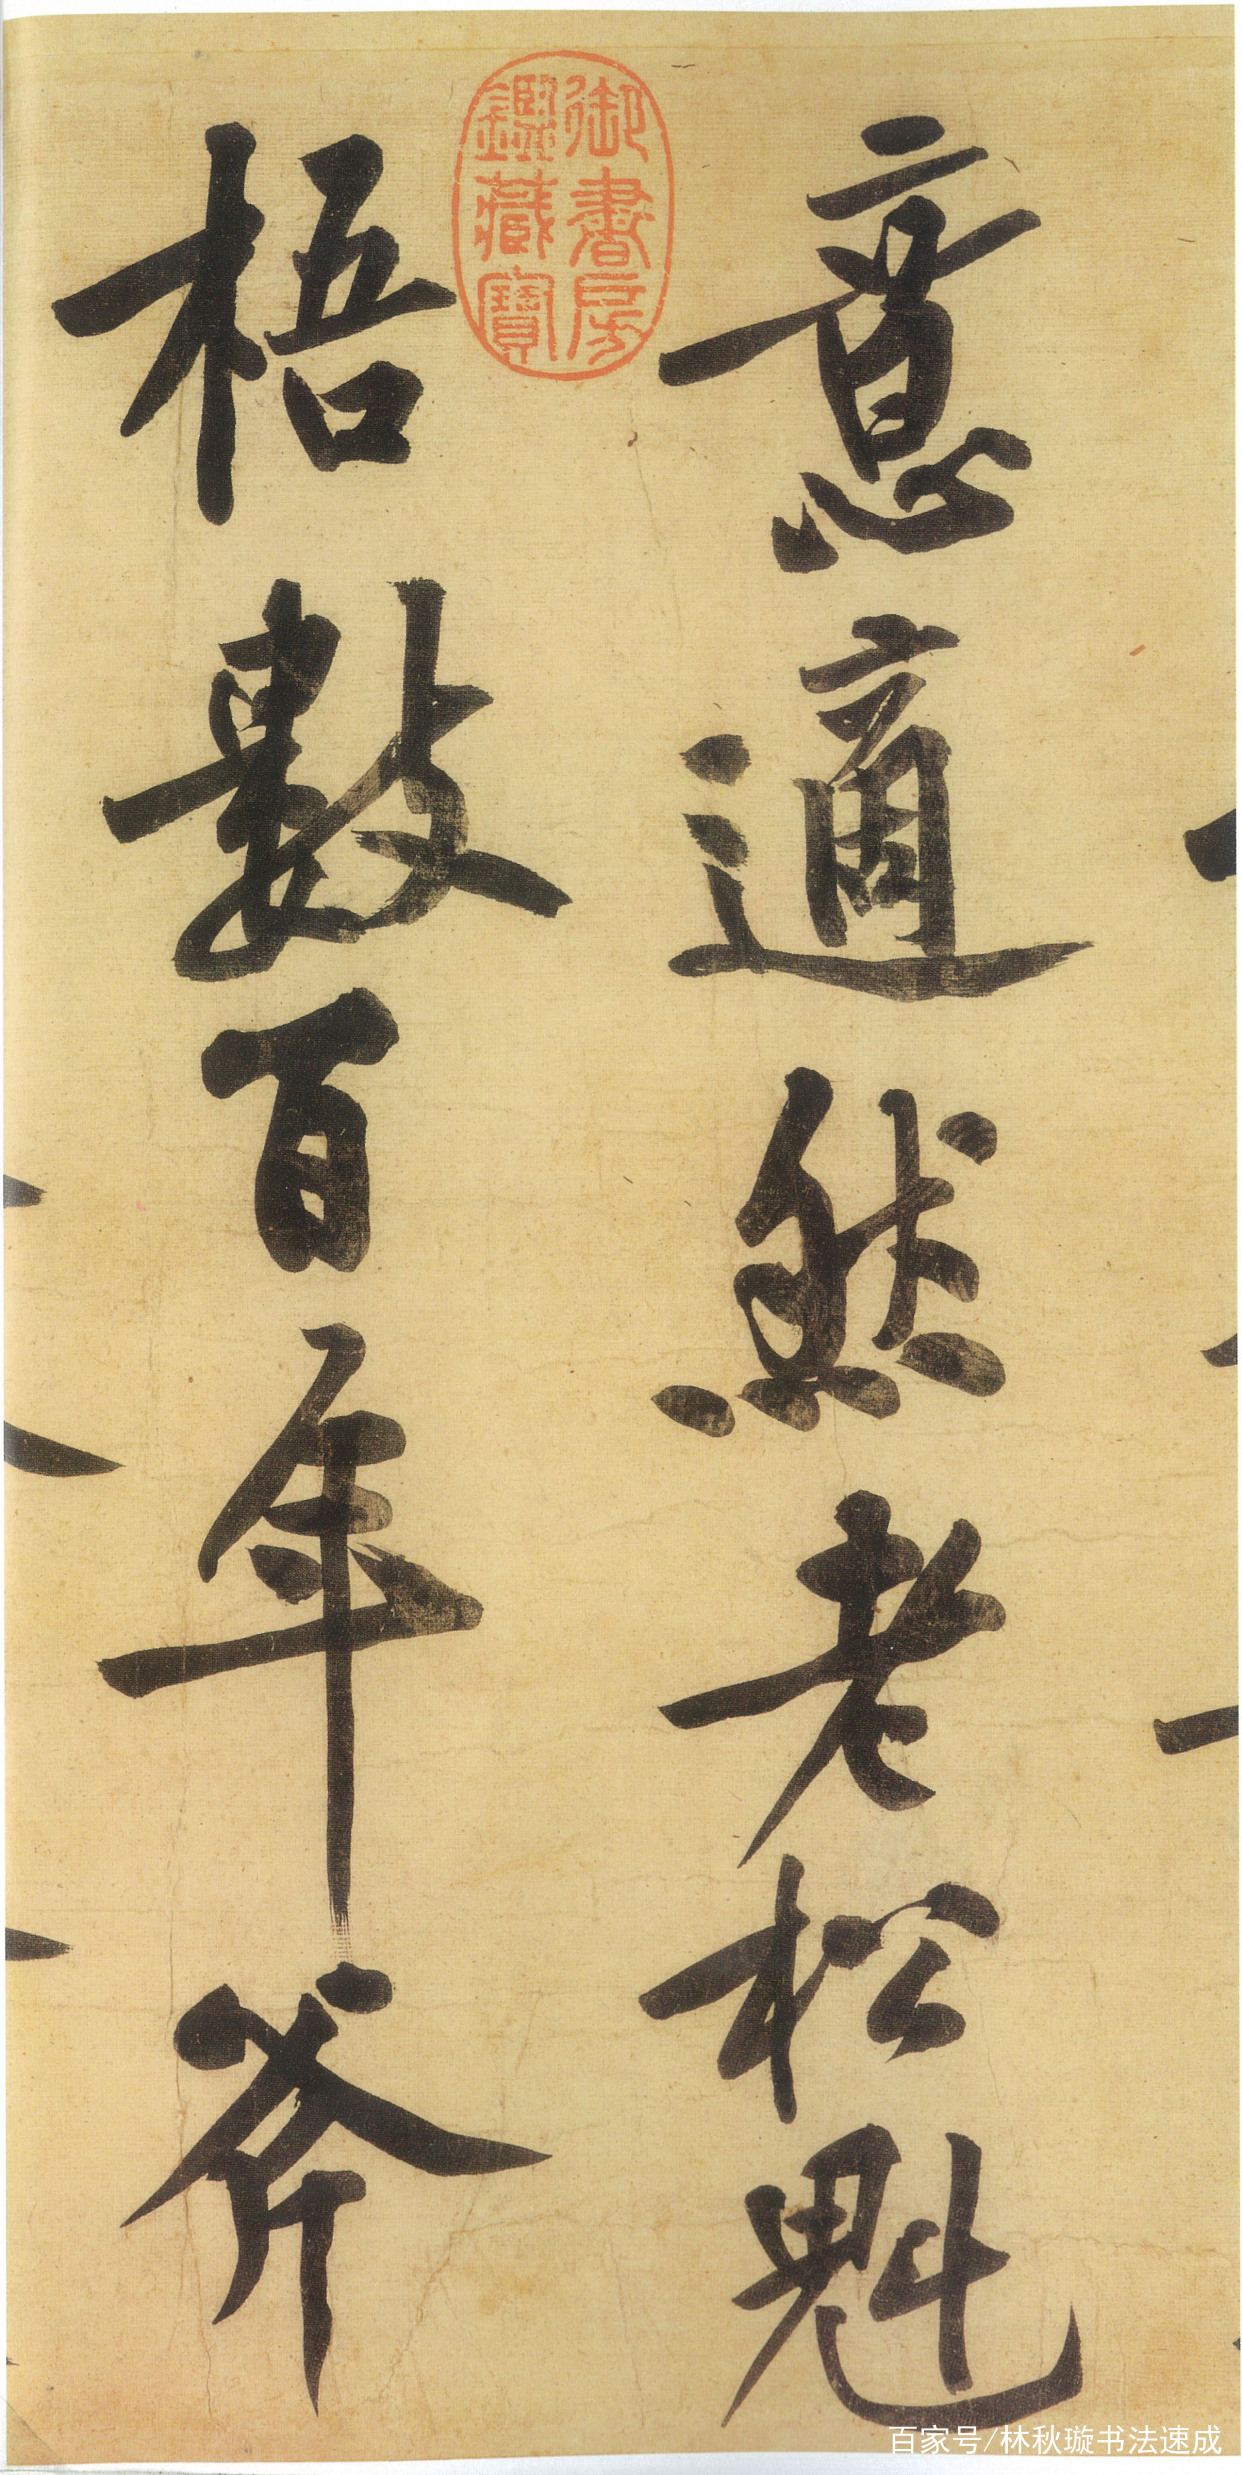 意適然老松魁
梧數百年斧
御書房
鑑藏寶
百家号/林秋璇书法速成